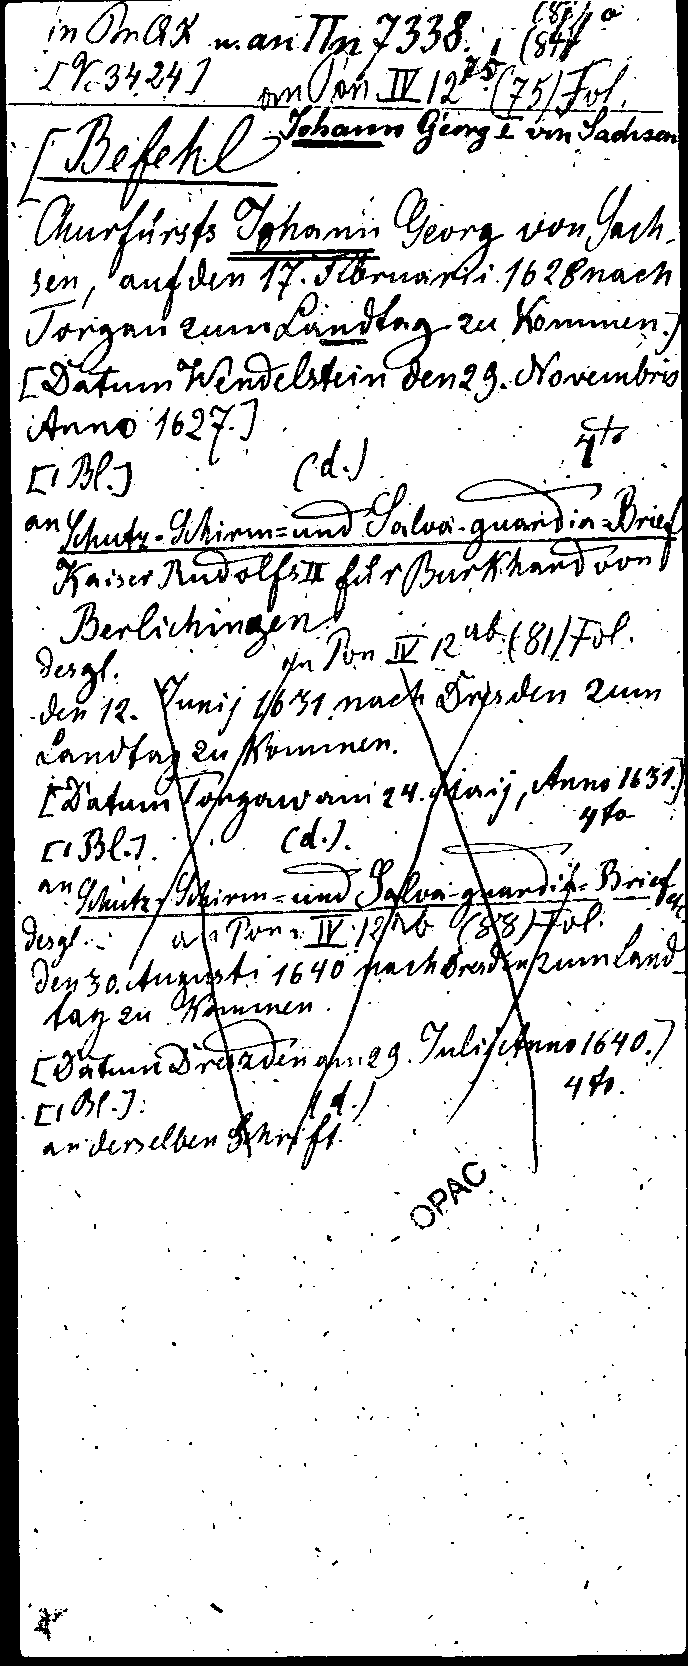 in Pon QK u. an II n 7338.
(84)
[V. 3424]
an Pon. IV 12 75 (75) Fol.
Johann Georg I von Sachsen
[Befehl
Churfürsts Johann Georg von Sach-
sen, auf den 17. Februarii 1628 nach
Torgau zum Landtag zu Kommen.]
[Datum Wendelstein den 29. Novembris
Anno 1627.]
4to
[1 Bl.] (d.)
an Schutz-Schirm=und Salva-guardia=Brief
Kaiser Rudolfs II für Burkhard von
Berlichingen
desgl. in Pon IV 12 ab (81) Fol.
den 12. Junij 1631 nach Dresden zum
Landtag zu Kommen.
[Datum Torgaw am 24. Maij, Anno 1631.]
4to
[1 Bl.]. (d.).
an Schutz-Schirm=und Salva-guardia=Brief etc.
desgl. an Pon. IV 12 ab (88) Fol.
den 30. Augusti 1640 nach Dresden zum Land-
tag zu Kommen.
[Datum Dreszden am 29. Julij Anno 1640.]
4to.
[1 Bl.]. (d.)
an derselben Schrift.
OPAC